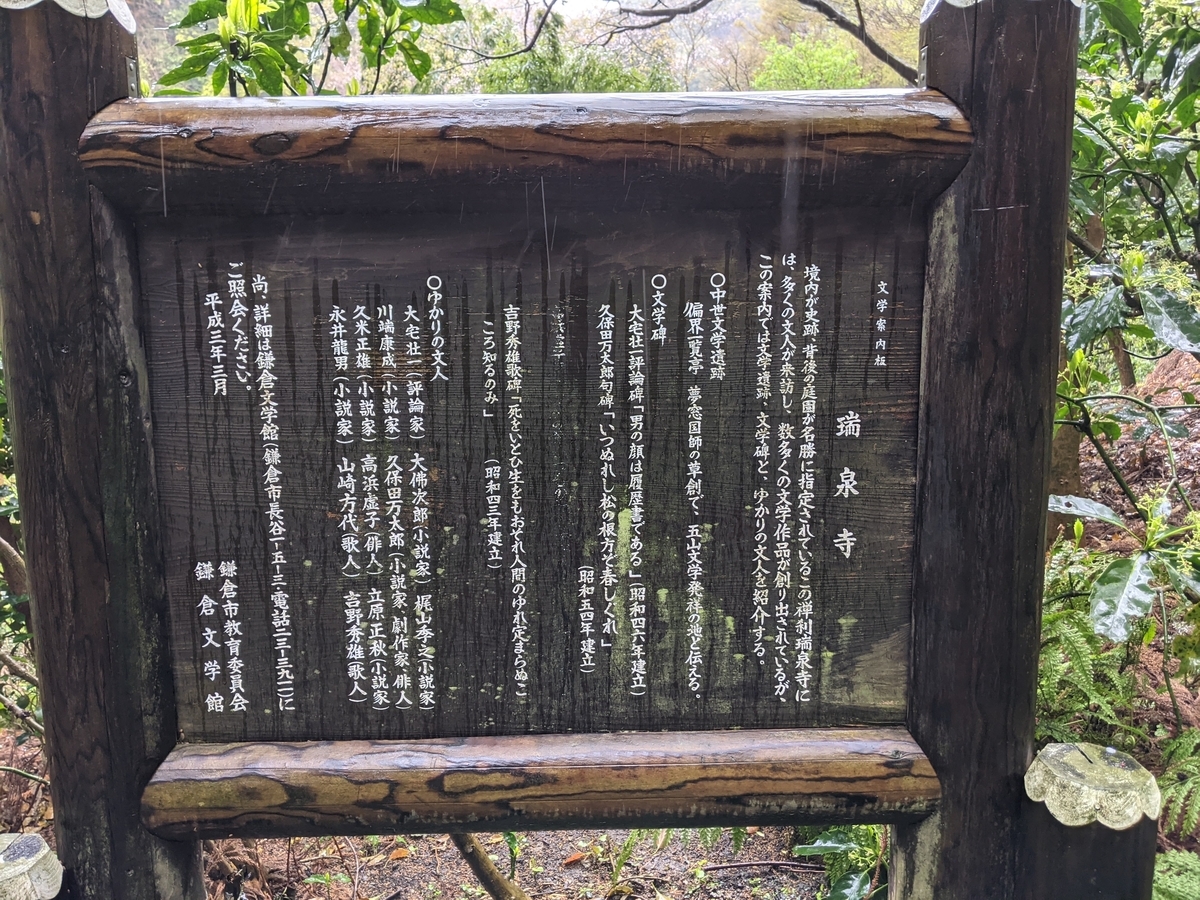 文学案内板
瑞泉寺
境内が史跡、背後の庭園が名勝に指定されているこの禅刹瑞泉寺に
は、多くの文人が来訪し、数多くの文学作品が創り出されているが、
この案内では文学遺跡、文学碑と、ゆかりの文人を紹介する。
〇中世文学遺跡
偏界一覧亭 夢窓国師の草創で、五山文学発祥の地と伝える。
〇文学碑
大宅壮一評論碑「男の顔は履歴書である」(昭和四六年建立)
久保田万太郎句碑「いつぬれし松の根方ぞ春しぐれ」
(昭和五四年建立)
吉野秀雄歌碑「死をいとひ生をもおそれ人間のゆれ定まらぬこ
ころ知るのみ」
(昭和四三年建立)
〇ゆかりの文人
大宅壮一(評論家) 大佛次郎(小説家) 梶山季之(小説家)
川端康成(小説家) 久保田万太郎(小説家、劇作家、俳人)
久米正雄(小説家) 高浜虚子(俳人) 立原正秋(小説家)
永井龍男(小説家) 山崎方代(歌人) 吉野秀雄(歌人)
尚、詳細は鎌倉文学館(鎌倉市長谷一-五-三・電話二三-三九一一)に
ご照会ください。
平成三年三月
鎌倉市教育委員会
鎌倉文学館